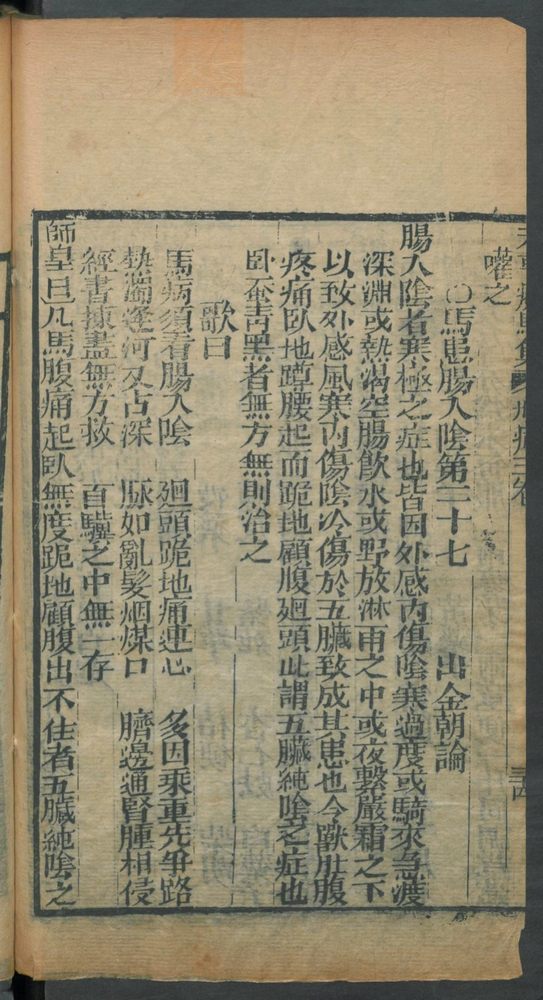 灌之
○馬患腸入陰第二十七　出金朝論
腸入陰者寒極之症也皆因外感內傷陰寒過度或騎來急渡
深淵或熱渴空腸飲水或野放淋雨之中或夜繫嚴霜之下
以致外感風寒內傷陰冷傷於五臟致成其患也令獸肚腹
疼痛臥地蹲腰起而跪地顧腹廻頭此謂五臟純陰之症也
卧蚕青黑者無方無則治之
歌曰
馬病須看腸入陰　廻頭跪地痛連心　多因乘重先爭路
熱渴逢河又占深　脉如亂髮烟煤口　臍邊通腎腫相侵
經書揀盡無方救　百驥之中無一存
師皇曰凡馬腹痛起臥無度跪地顧腹出不住者五臟純陰之